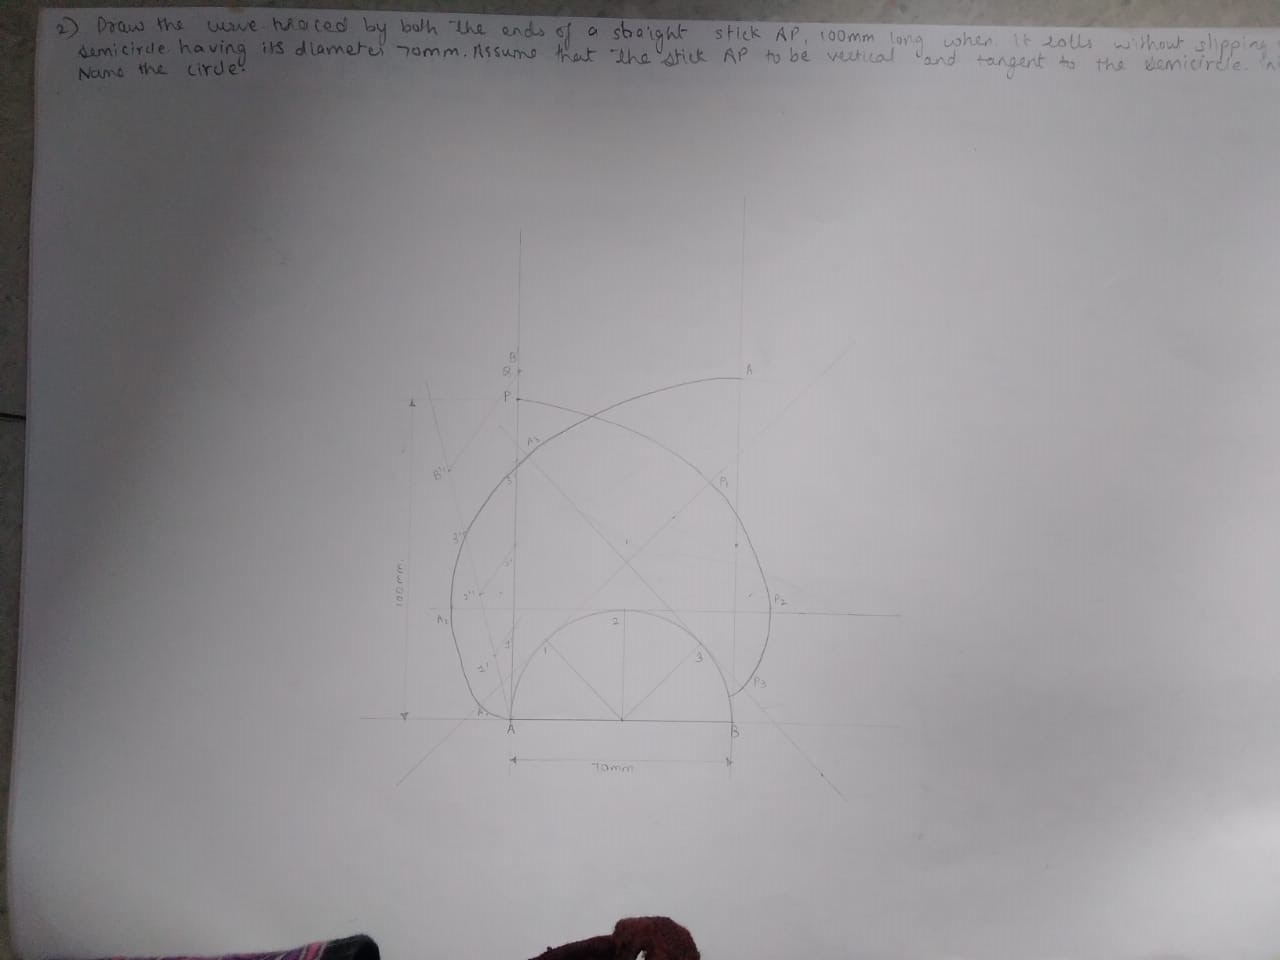 2) Draw the curve traced by both the ends of a straight stick AP, 100mm long when it rolls without slipping
semicircle having its diameter 70mm. Assume that the stick AP to be vertical and tangent to the semicircle.
Name the circle.
B
Q
A
P
A3
B''
3
P1
3''
3'
1'
100mm
2''
P2
A2
2
1
1
3
1'
P3
A1
A
B
70mm